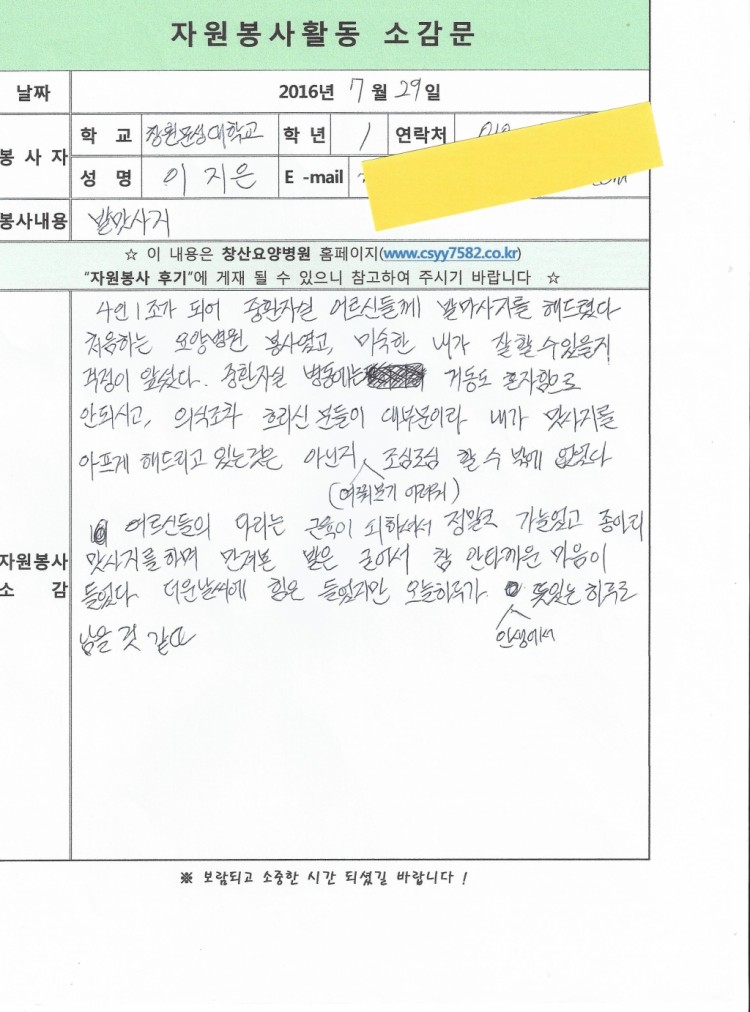 자원봉사활동 소감문
날짜 2016년 7월 29일
봉사자 학교 창원문성대학교 학년 1 연락처 010
성명 이지은 E-mail
봉사내용 발맛사지
☆ 이 내용은 창산요양병원 홈페이지(www.csyy7582.co.kr)
"자원봉사 후기"에 게재 될 수 있으니 참고하여 주시기 바랍니다 ☆
자원봉사 소감
4인 1조가 되어 중환자실 어르신들께 발마사지를 해드렸다
처음하는 요양병원 봉사였고, 미숙한 내가 잘 할 수 있을지
걱정이 앞섰다. 중환자실 병동에는 거동도 혼자힘으로
안되시고, 의식조차 흐리신 분들이 대부분이라 내가 맛사지를
아프게 해드리고 있는것은 아닌지 조심조심 할 수 밖에 없었다
(여쭤보기 어려워)
어르신들의 다리는 근육이 퇴화해서 정말로 가늘었고 종아리
맛사지를 하며 만져본 발은 굳어서 참 안타까운 마음이
들었다. 더운날씨에 힘은 들었지만 오늘하루가 뜻있는 하루로
인생에서
남을 것 같다
※ 보람되고 소중한 시간 되셨길 바랍니다 !